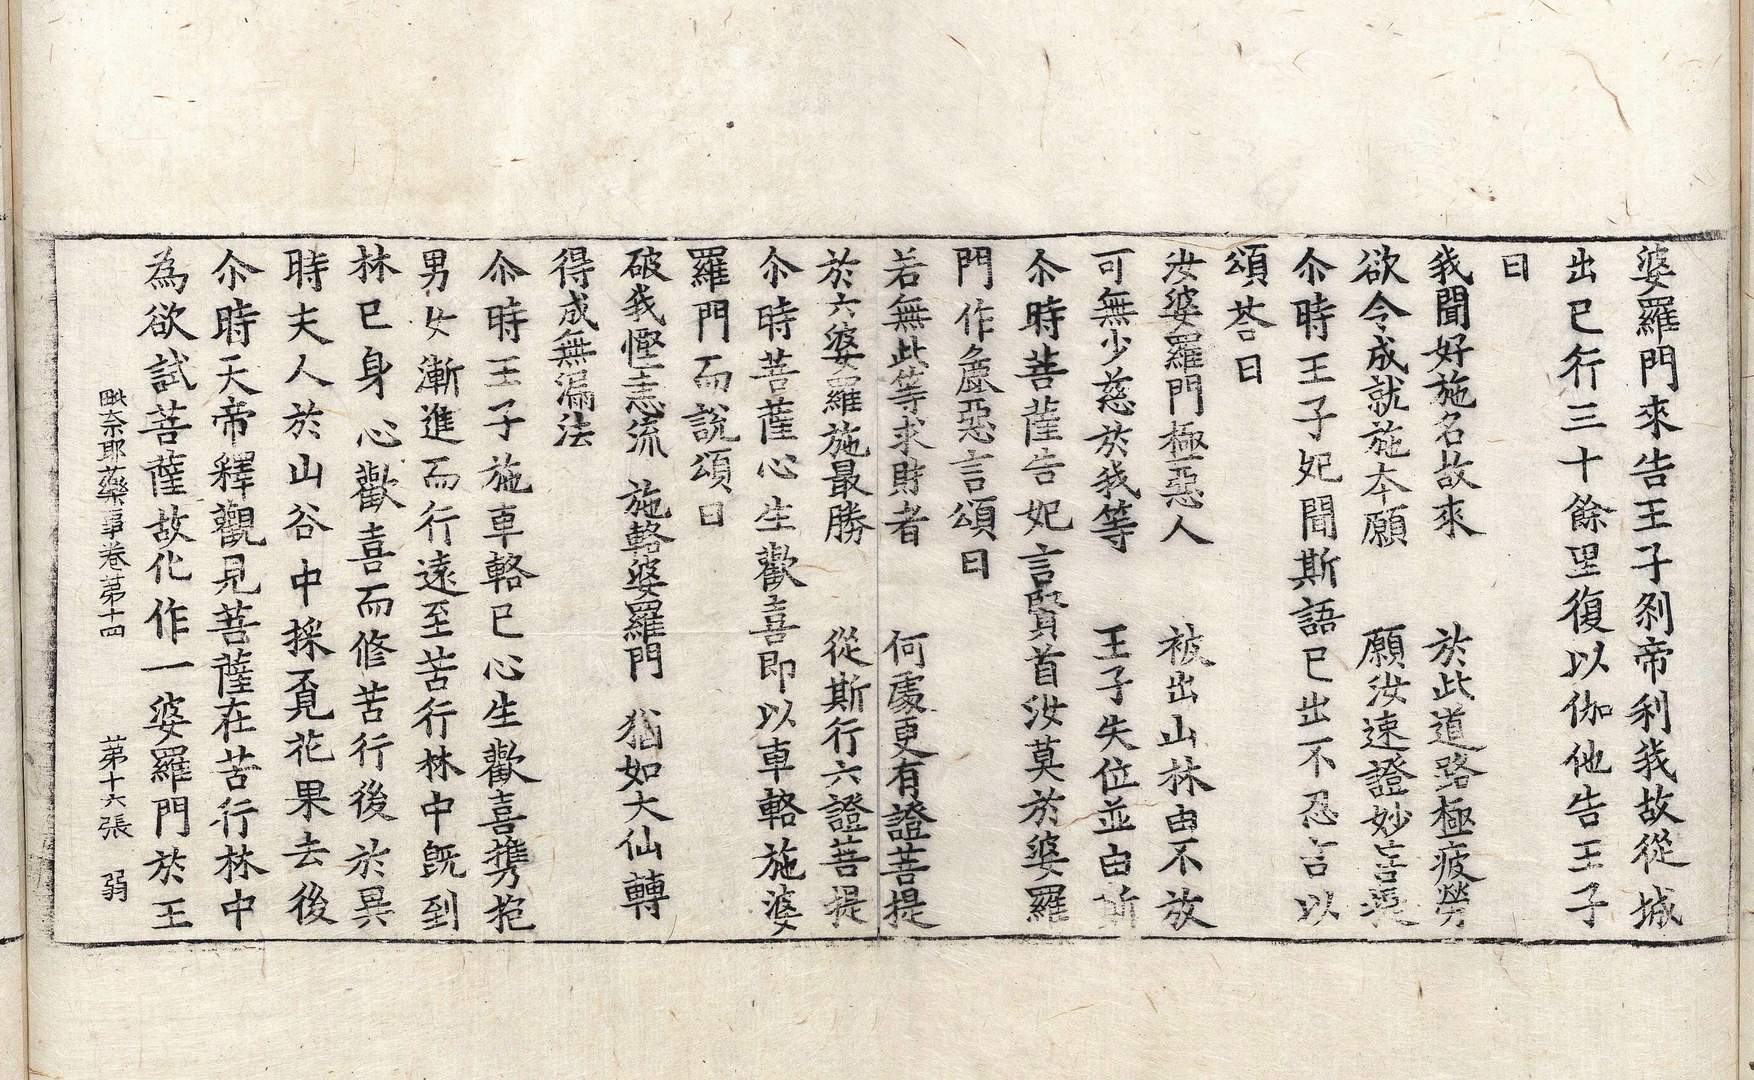 婆羅門來告王子刹帝利我故從城
出已行三十餘里復以伽他告王子
曰
我聞好施名故來　於此道路極疲勞
欲令成就施本願　願汝速證妙菩提
尒時王子妃聞斯語已出不忍言以
頌荅曰
汝婆羅門極惡人　被出山林由不放
可無少慈於我等　王子失位並由斯
尒時菩薩告妃言賢首汝莫於婆羅
門作麁惡言頌曰
若無此等求財者　何處更有證菩提
於六婆羅施最勝　從斯行六證菩提
尒時菩薩心生歡喜即以車輅施婆
羅門而說頌曰
破我慳恚流　施輅婆羅門　猶如大仙轉
得成無漏法
尒時王子施車輅已心生歡喜擕抱
男女漸進而行遠至苦行林中旣到
林已身心歡喜而修苦行後於異
時夫人於山谷中採覓花果去後
尒時天帝釋觀見菩薩在苦行林中
為欲試菩薩故化作一婆羅門於王
毗奈耶藥事卷苐十四　苐十六張　弱